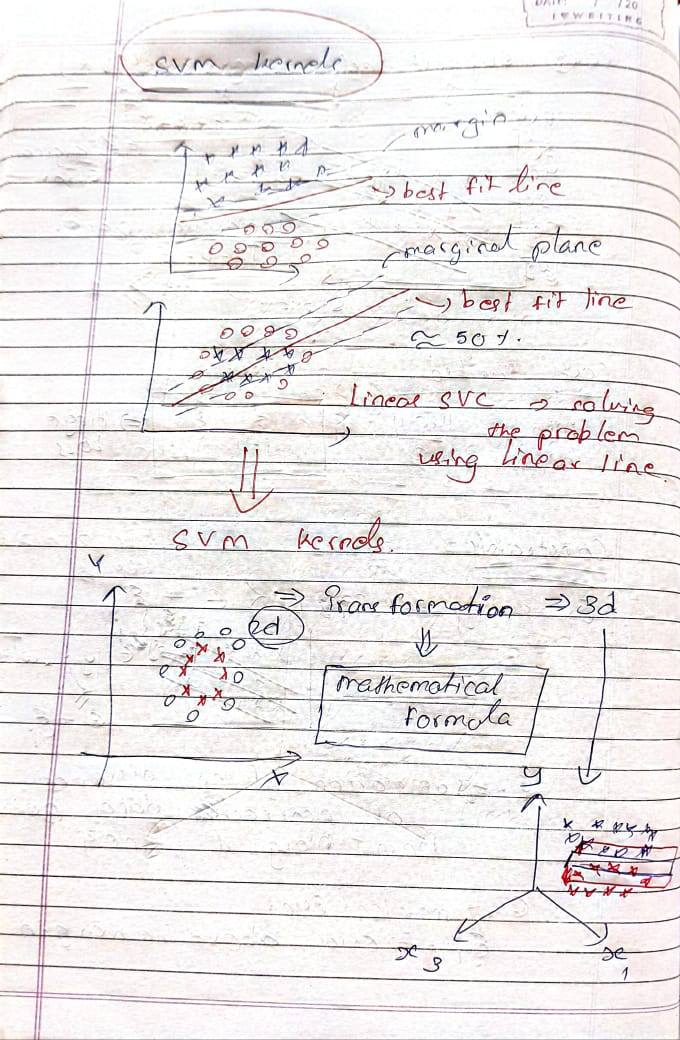 DATE: / /20
SVM kernels
margin
→ best fit line
marginal plane
→ best fit line
≈ 50 %.
Linear SVC → solving
the problem
using linear line.
SVM kernels.
Y
⇒ Transformation ⇒ 3d
2d
mathematical
formula
X
y
x 3
x 1